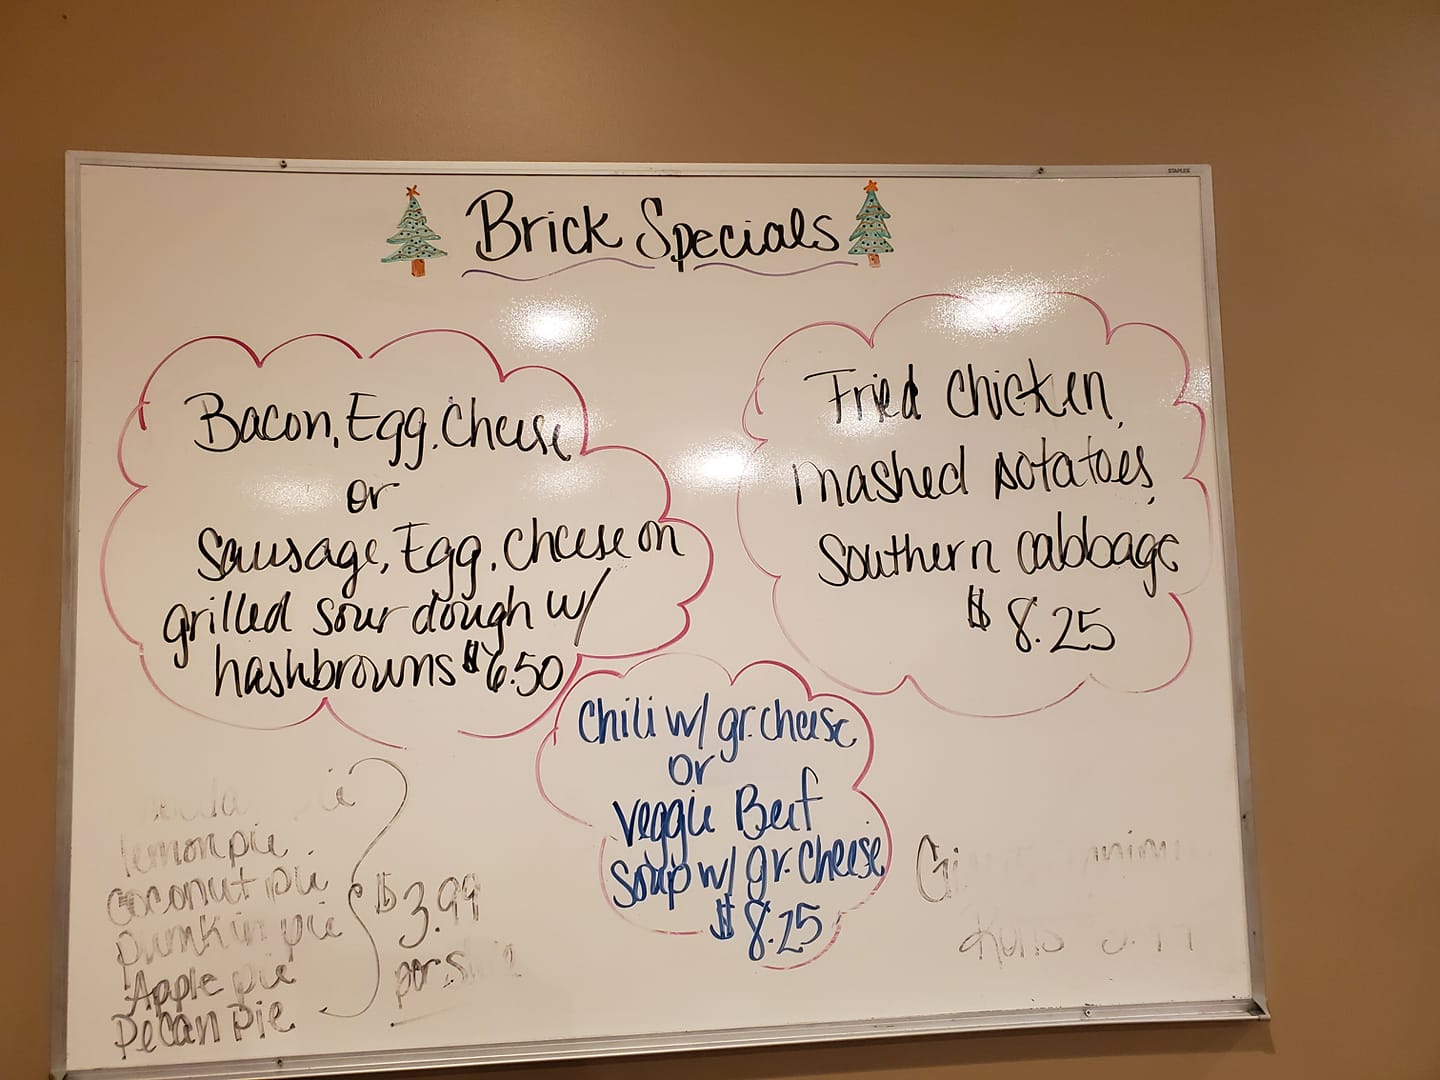 STAPLES
Brick Specials
Bacon, Egg, Cheese
or
Sausage, Egg, Cheese on
grilled sour dough w/
hashbrowns $6.50
Fried Chicken,
mashed potatoes,
Southern cabbage
$8.25
Chili w/ gr. cheese
or
Veggie Beef
Soup w/ gr. cheese
$8.25
pie
lemon pie
coconut pie
pumkin pie
Apple pie
Pecan Pie
$3.99
per slice